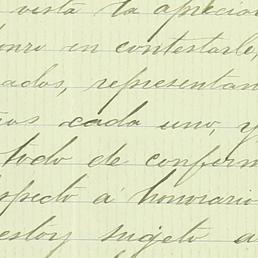 vista la aprecion
onro en contestarle,
ados, representan
os cada uno, y
todo de conform
specto á honorario
estoy sugeto a